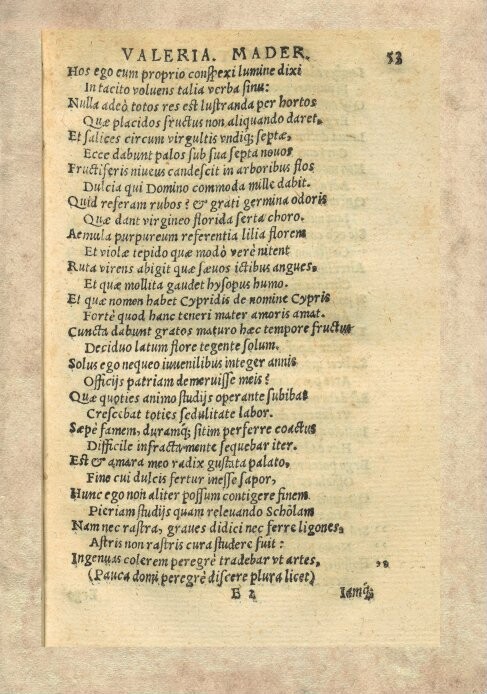 VALERIA. MADER. 53
Hos ego cum proprio conspexi lumine dixi
In tacito voluens talia verba sinu:
Nulla adeò totos res est lustranda per hortos
Quæ placidos fructus non aliquando daret,
Et salices circum virgultis vndiq; septæ,
Ecce dabunt palos sub sua septa nouos
Fructiferis niueus candescit in arboribus flos
Dulcia qui Domino commoda mille dabit.
Quid referam rubos? & grati germina odoris
Quæ dant virgineo florida serta choro.
Aemula purpureum referentia lilia florem
Et violæ tepido quæ modò verè nitent
Ruta virens abigit quæ sæuos ictibus angues,
Et quæ mollita gaudet hysopus humo.
Et quæ nomen habet Cypridis de nomine Cypris
Fortè quod hanc teneri mater amoris amat.
Cuncta dabunt gratos maturo hæc tempore fructus
Deciduo latum flore tegente solum.
Solus ego nequeo iuuenilibus integer annis
Officijs patriam demeruisse meis?
Quæ quoties animo studijs operante subibat
Crescebat toties sedulitate labor.
Sæpè famem, duramq; sitim perferre coactus
Difficile infracta mente sequebar iter.
Est & amara meo radix gustata palato,
Fine cui dulcis fertur inesse sapor,
Hunc ego non aliter possum contigere finem
Pieriam studijs quam releuando Schôlam
Nam nec rastra, graues didici nec ferre ligones,
Astris non rastris cura studere fuit:
Ingenuas colerem peregrè tradebar vt artes,
(Pauca domi peregrè discere plura licet)
B 2 Iamq;